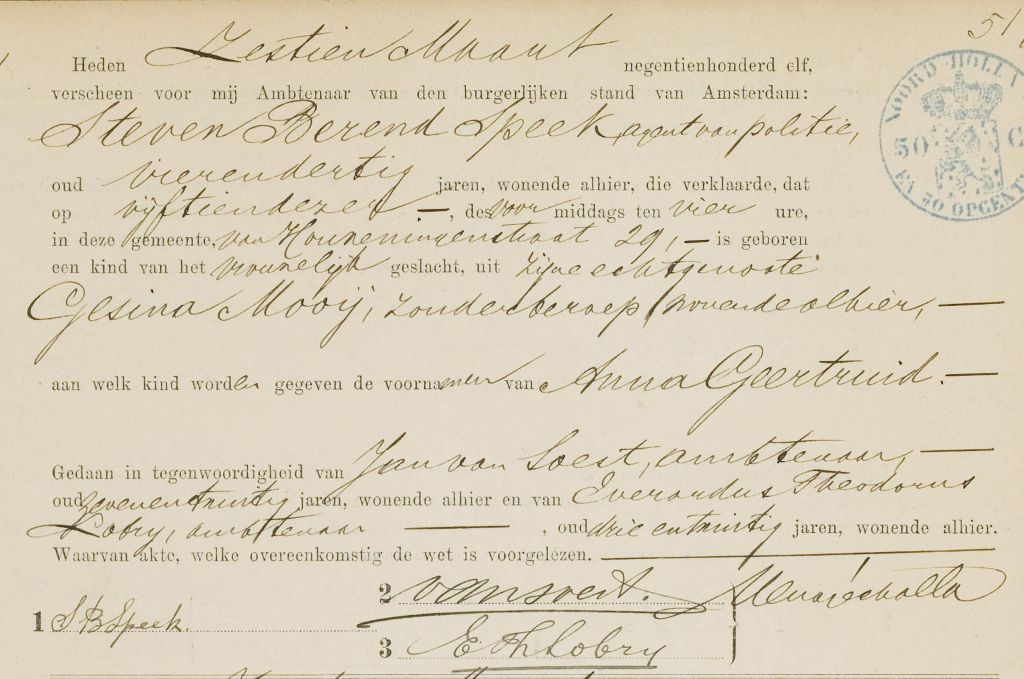 51
Heden Zestien Maart negentienhonderd elf,
verscheen voor mij Ambtenaar van den burgerlijken stand van Amsterdam:
Steven Berend Speek, agent van politie,
oud vierendertig jaren, wonende alhier, die verklaarde, dat
op vijftien dezer —, des voor middags ten vier ure,
in deze gemeente, van Houweningenstraat 29, — is geboren
een kind van het vrouwelijk geslacht, uit zijne echtgenoote
Gesina Mooij, zonder beroep, wonende alhier, —
aan welk kind worden gegeven de voornamen van Anna Geertruid. —
Gedaan in tegenwoordigheid van Jan van Soest, ambtenaar, —
oud zevenentwintig jaren, wonende alhier en van Everardus Theodorus
Lobry, ambtenaar —, oud drieentwintig jaren, wonende alhier.
Waarvan akte, welke overeenkomstig de wet is voorgelezen. —
1 S B Speek.
2 van Soest.
3 E Th Lobry
NOORD-HOLLA
50 C
EN 30 OPCENT